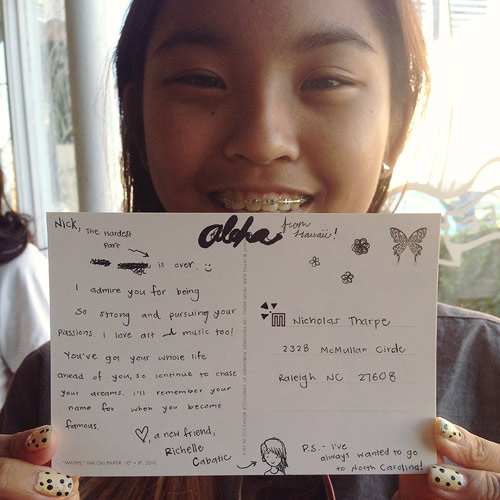 aloha from Hawaii!
Nick, The Hardest
Part
is over.
I admire you for being
so strong and pursuing your
passions. I love art and music too!
You've got your whole life
ahead of you, so continue to chase
your dreams. I'll remember your
name for when you become
famous.
, a new friend,
Richelle
Cabatic
Nicholas Tharpe
2328 McMullan Circle
Raleigh NC 27608
P.S. - I've
always wanted to go
to North Carolina!